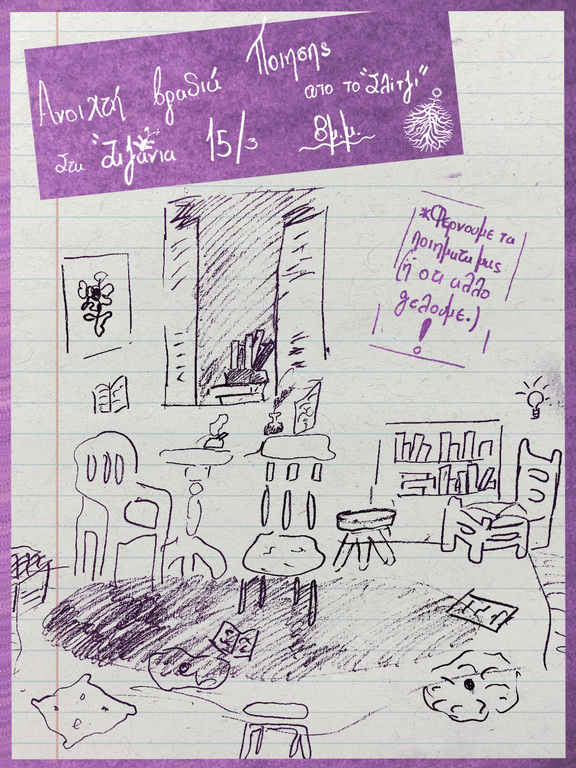 Ανοιχτή βραδιά Ποίησης
απο το "Σλίτζι"
Στα "Ζιζάνια 15/3 8μ.μ.
*Φέρνουμε τα
ποιηματα μας
(ή οτι αλλο
θελουμε.)
!